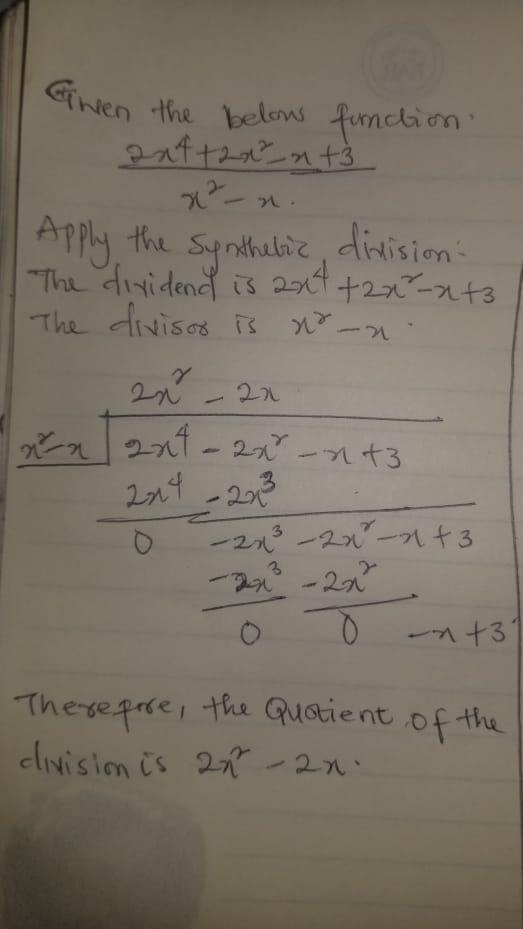 Given the below function.
2x⁴+2x²-x+3
x²-x.
Apply the Synthetic division:
The dividend is 2x⁴+2x²-x+3
The divisor is x²-x.
2x²-2x
x²-x 2x⁴-2x²-x+3
2x⁴-2x³
0 -2x³-2x²-x+3
-2x³-2x²
0 0 -x+3
Therefore, the Quotient of the
division is 2x²-2x.